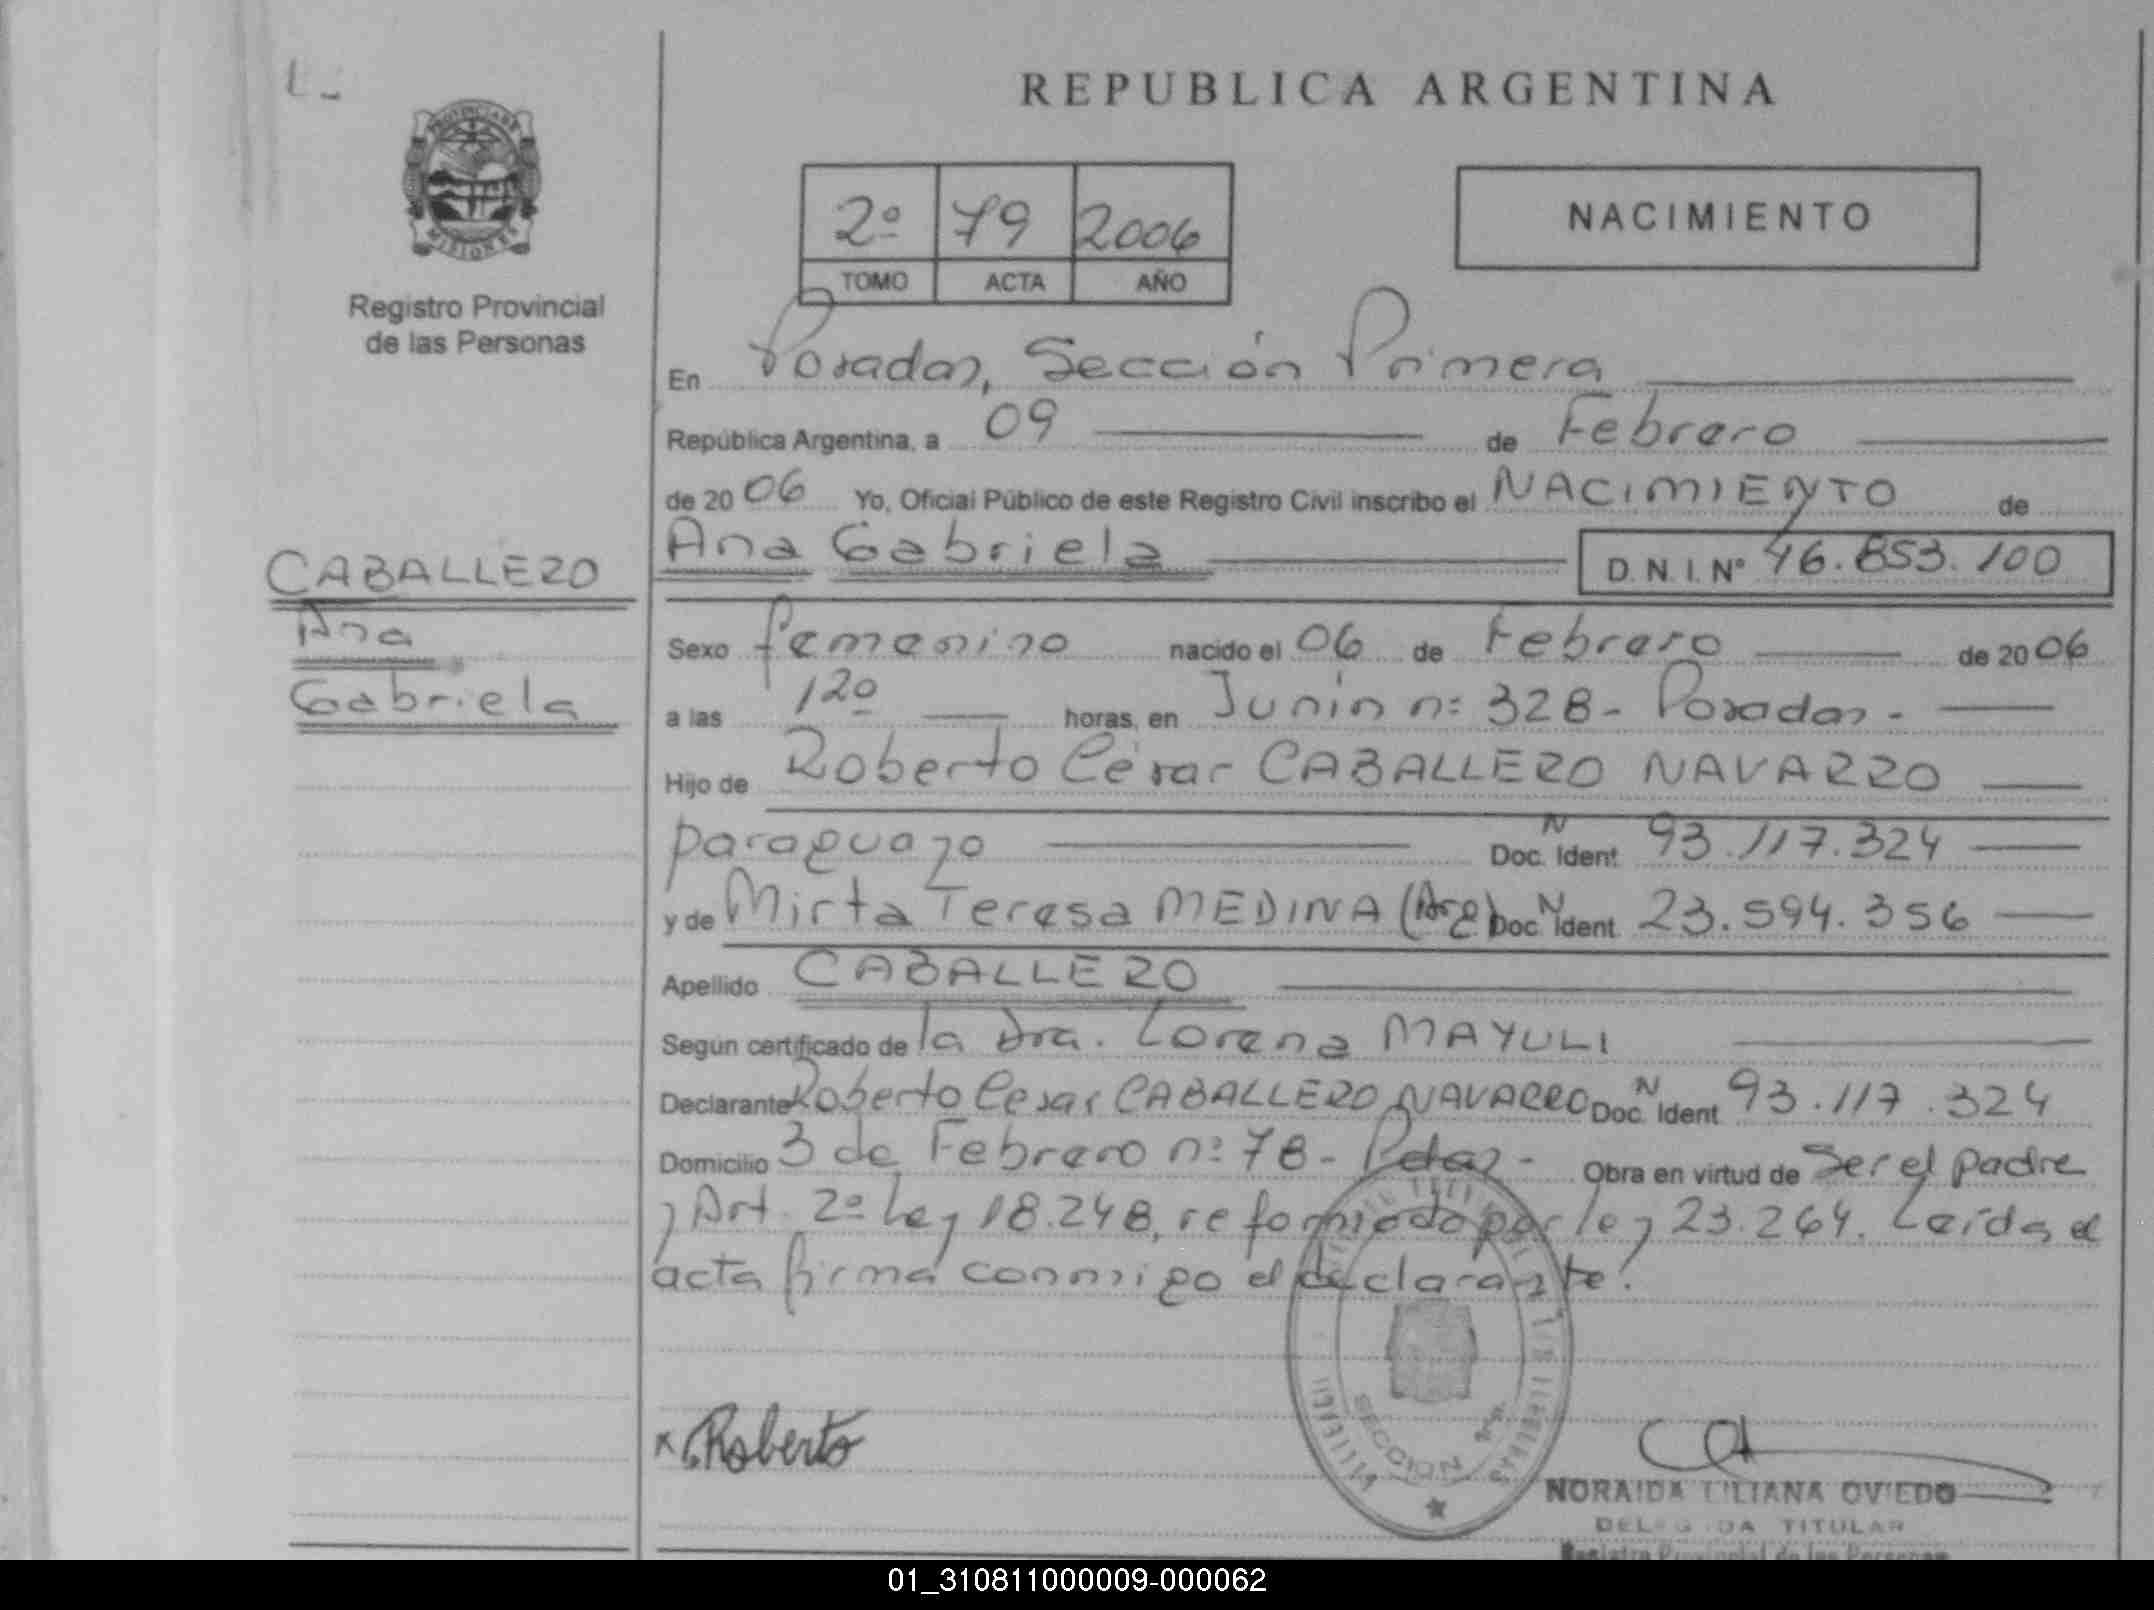 REPUBLICA ARGENTINA
PROVINCIA DE
MISIONES
Registro Provincial
de las Personas
2º 79 2006
TOMO ACTA AÑO
NACIMIENTO
En Posadas, Sección Primera
República Argentina, a 09 de Febrero
de 2006 Yo, Oficial Público de este Registro Civil inscribo el NACIMIENTO de
Ana Gabriela D.N.I.Nº 46.853.100
CABALLERO
Ana
Gabriela
Sexo femenino nacido el 06 de Febrero de 2006
a las 12º horas, en Junín nº 328 - Posadas -
Hijo de Roberto César CABALLERO NAVARRO
paraguayo Doc. N Ident. 93.117.324
y de Mirta Teresa MEDINA (Arg) Doc. N Ident. 23.594.356
Apellido CABALLERO
Según certificado de la Dra. Lorena MAYULI
Declarante Roberto Cesar CABALLERO NAVARRO Doc. N Ident. 93.117.324
Domicilio 3 de Febrero nº 78 - Pdas - Obra en virtud de Ser el padre
y Art. 2º Ley 18.248, reformado por ley 23.264. Leída el
acta firma conmigo el declarante.
x Roberto
SECCION
NORAIDA LILIANA OVIEDO
DELEGADA TITULAR
Registro Provincial de las Personas
01_310811000009-000062